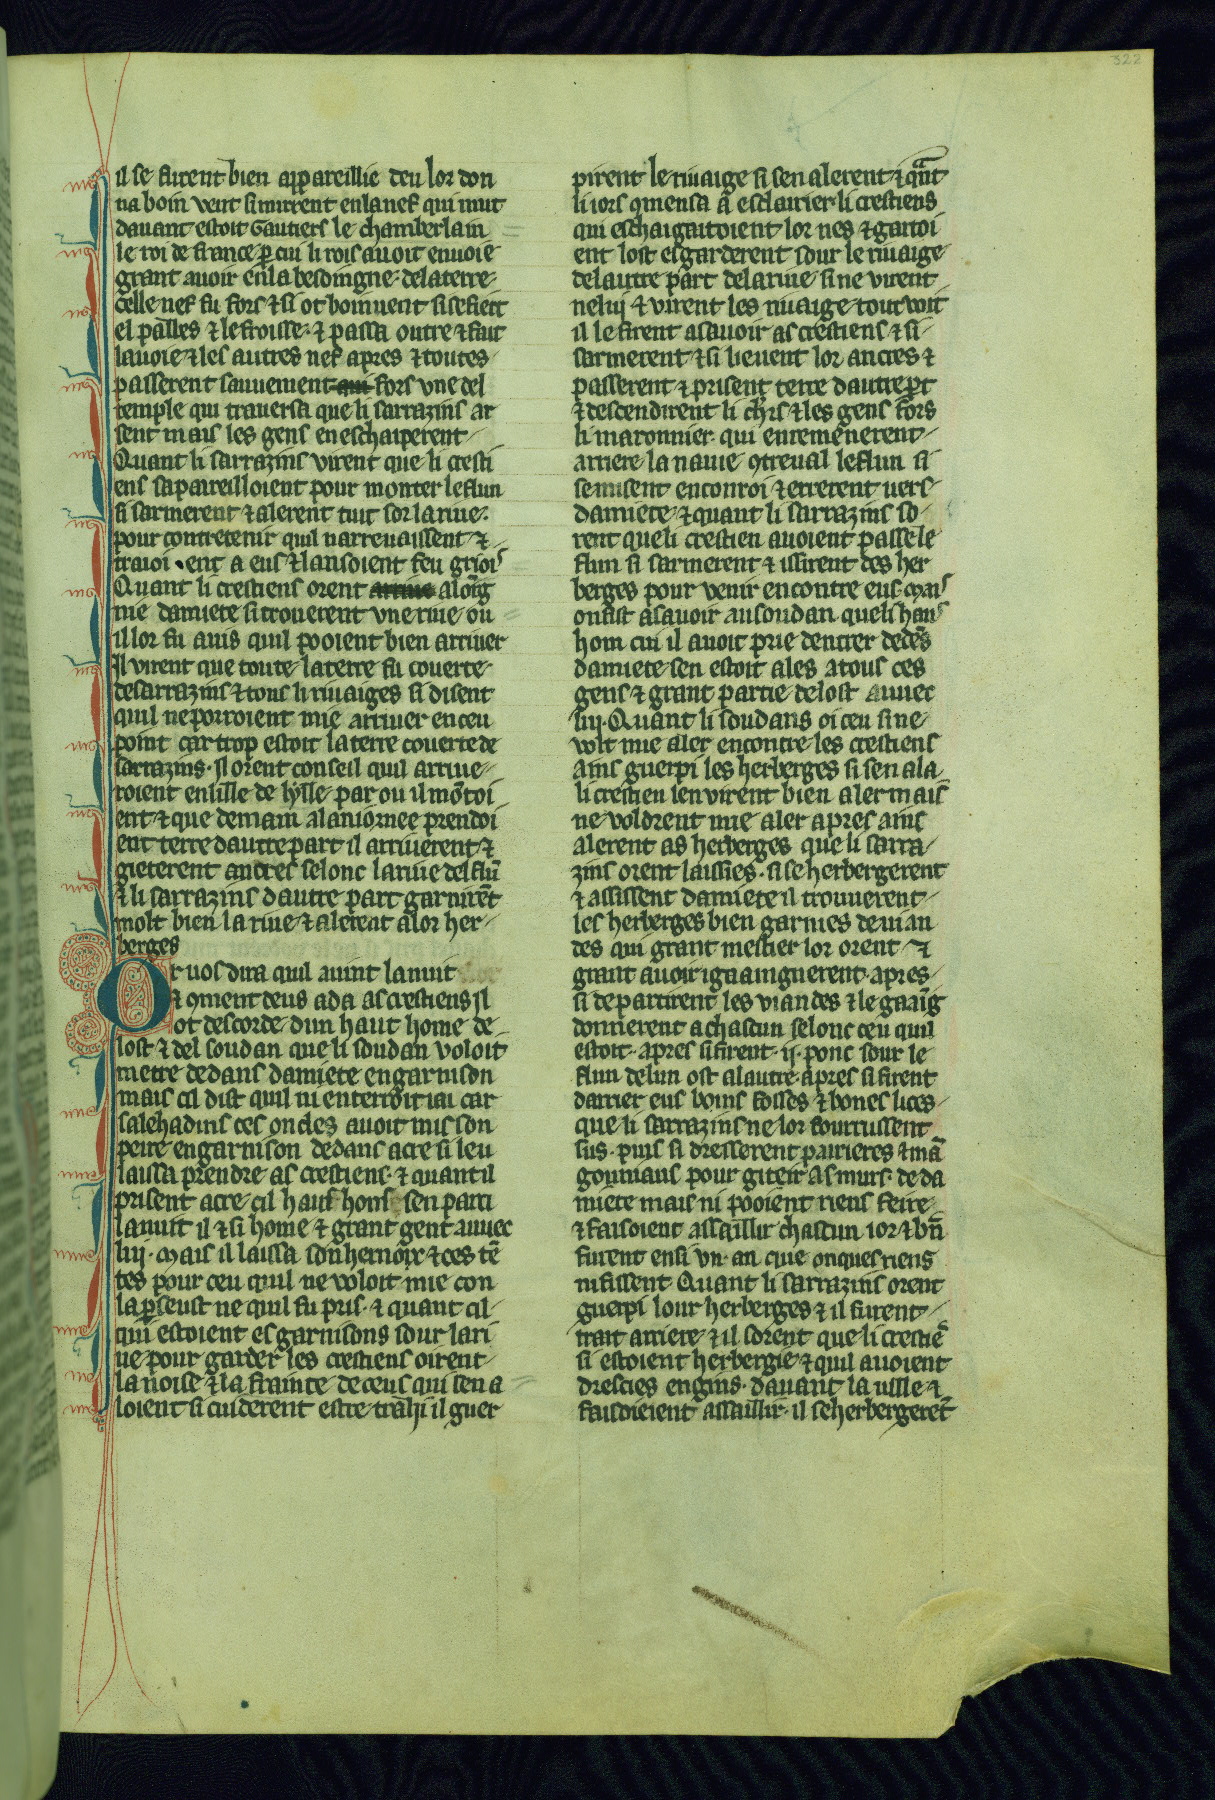 322
il se furent bien appareillie deu lor don
na boin vent si murent en la nef qui mut
dauant estoit Gautiers le chamberlain
le roi de france p cui li rois auoit enuoie
grant auoir en la besoingne de la terre
celle nef fu fors & si ot boin uent si se fiert
el palles & le froisse & passa outre & fait
la uoie & les autres nef apres & toutes
passerent sauuement qui fors vne del
temple qui trauersa que li sarrazins ar
sent mais les gens en eschaiperent
Quant li sarrazins virent que li cresti
ens sapareilloient pour monter le flun
si sarmerent & alerent tuit sor la riue
pour contretenir quil narreuaissent &
traioi ent a eus & lansoient feu griois
Quant li crestiens orent along
nie damiete si trouerent vne riue ou
il lor fu auis quil pooient bien arriuer
Il virent que toute la terre fu couerte
de sarrazins & tous li riuaiges si disent
quil ne porroient mie arriuer en ceu
point car trop estoit la terre couerte de
sarrazins. Il orent conseil quil arriue
roient en lille de lysle par ou il mōtoi
ent & que demain a laniornee prendoi
ent terre dautre part il arriuerent &
gieterent ancres selonc la riue del flū
& li sarrazins dautre part garnirēt
molt bien la riue & alerent a lor her
berges
Or uos dira quil auint la nuit
& 9ment deus ada as crestiens Il
ot descorde dun haut home de
lost & del soudan que li soudan voloit
metre dedans damiete en garnison
mais cil dist quil ni enterroit iai car
salehadins ces oncles auoit mis son
peire en garnison dedans acre si leu
laissa prendre as crestiens & quant il
prisent acre cil haus homs sen parti
la nuit il & si home & grant gent auuec
lui. Mais il laissa son hernoix & ces tē
tes pour ceu quil ne voloit mie con
lapseust ne quil fu pris. & quant cil
qui estoient es garnisons sour la ri
ue pour garder les crestiens oirent
la noise & la frainte de ceus qui sen a
loient si cuiderent estre trahi il guer
pirent le riuaige si sen alerent & qāt
li iors 9mensa a esclairier li crestiens
qui eschaigaitoient lor nes & gaitoi
ent lost esgarderent sour le riuaige
de lautre part de la riue si ne virent
nelui & virent les riuaige tout voit
il le firent asauoir as crestiens & si
sarmerent & si lieuent lor ancres &
passerent & prisent terre dautre pt
& descendirent li chrs & les gens fors
li maronnier qui enremenerent
arriere la nauie 9treual le flun si
se misent en conroi & errerent uers
damiete & quant li sarrazins so
rent que li crestien auoient passe le
flun si sarmerent & issirent des her
berges pour venir encontre eus mais
on fist asauoir au soudan que li haus
hom cui il auoit prie dentrer dedēs
damiete sen estoit ales a tous ces
gens & grant partie de lost auuec
lui. Quant li soudans oi ceu si ne
volt mie aler encontre les crestiens
ains guerpi les herberges si sen ala
li crestien len virent bien aler mais
ne voldrent mie aler apres ains
alerent as herberges que li sarra
zins orent laissies. si se herbergerent
& assissent damiete il trouuerent
les herberges bien garnies de uian
des qui grant mestier lor orent &
grant auoir i guainguerent. apres
si departirent les viandes & le gaaīg
donnerent a chascun selonc ceu quil
estoit. apres si firent .ij. pons sour le
flun de lun ost a lautre apres si firent
darrier eus boins fosses & bones lices
que li sarrazins ne lor courrussent
sus. puis si dresserent pairieres & mā
gouniaus pour giteir as murs de da
miete mais ni pooient riens feire
& faisoient assaillir chascun ior & bn̄
furent ensi vn an que onques riens
ni fissent Quant li sarrazins orent
guerpi lour herberges & il furent
trait arriere & il sorent que li crestiē
si estoient herbergie & quil auoient
drescies engins dauant la uille &
faisoieient assaillir. il se herbergerēt